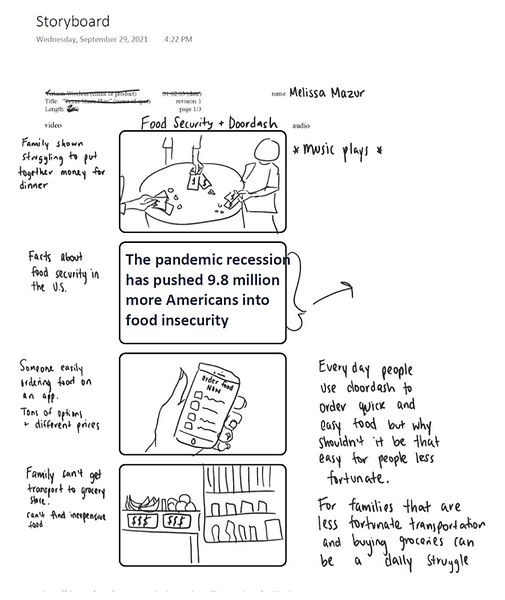 Storyboard
Wednesday, September 29, 2021 4:22 PM
Verizon Wireless (name of product)
Title: "Texas Share Plan" (name of spot)
Length:
revision 1
page 1/3
name Melissa Mazur
video
Food Security + Doordash
audio
Family shown
struggling to put
together money for
dinner
* Music plays *
Facts about
food security in
the U.S.
The pandemic recession
has pushed 9.8 million
more Americans into
food insecurity
Someone easily
ordering food on
an app.
Tons of options
+ different prices
order food
NOW
Every day people
use doordash to
order quick and
easy food but why
shouldn't it be that
easy for people less
fortunate.
Family can't get
transport to grocery
store.
can't find inexpensive
food
$$$ $$$
For families that are
less fortunate transportation
and buying groceries can
be a daily struggle